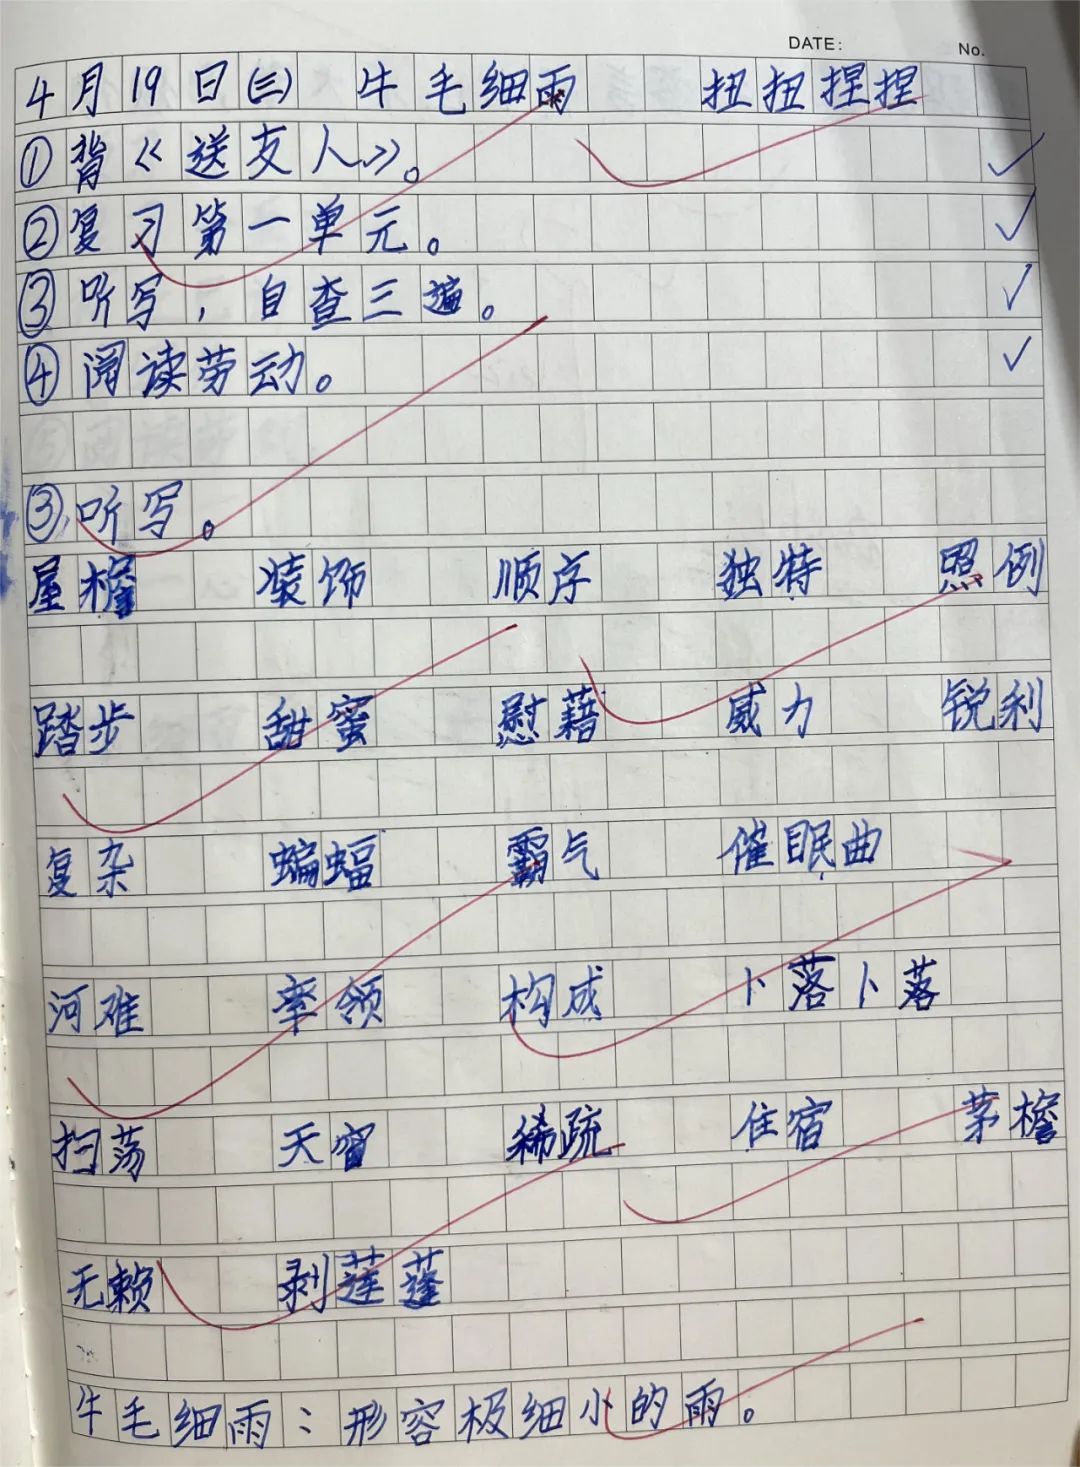 DATE: No.
4月19日(三) 牛毛细雨 扭扭捏捏
①背《送友人》。
②复习第一单元。
③听写,自查三遍。
④阅读劳动。
③听写。
屋檐 装饰 顺序 独特 照例
踏步 甜蜜 慰藉 威力 锐利
复杂 蝙蝠 霸气 催眠曲
河滩 率领 构成 卜落卜落
扫荡 天窗 稀疏 住宿 茅檐
无赖 剥莲蓬
牛毛细雨:形容极细小的雨。